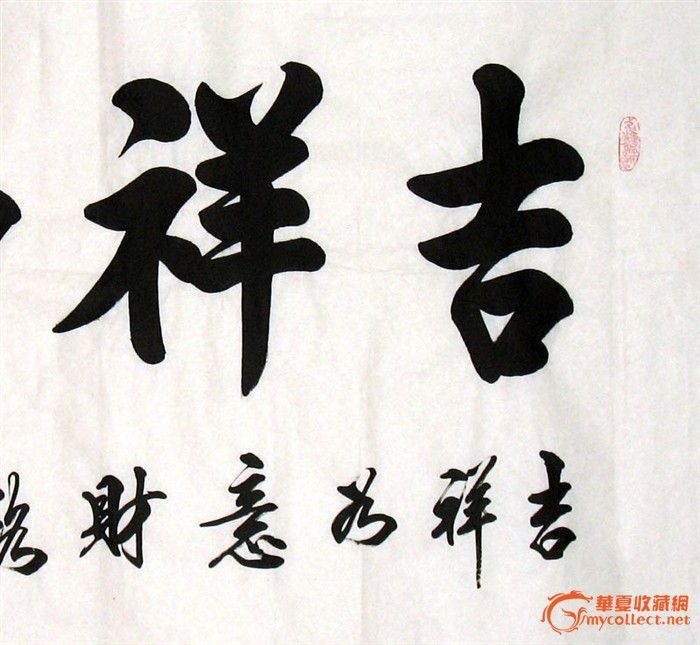 吉祥
吉祥如意財路
華夏收藏網
mycollect.net